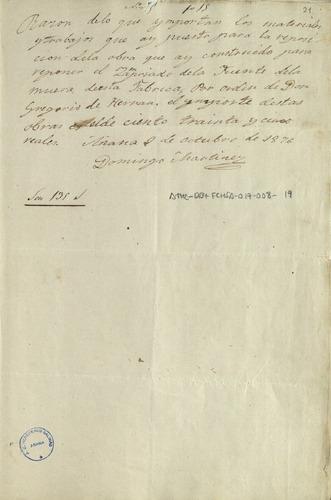 1-15
21
Razon delo que ymportan los materiales
y trabajos que ay puesto para la reposi
cion dela obra que ay construido para
reponer el Zampeado dela Fuente dela
muera desta Fabrica, Por orden de Don
Gregorio de Hernan, el ymporte destas
obras Asalde ciento trainta y cinco
reales. Añana 8 de octubre de 1876
Domingo Martinez
Son 135
ATHA-DAF-FCHSA-019-008-19
AÑANA